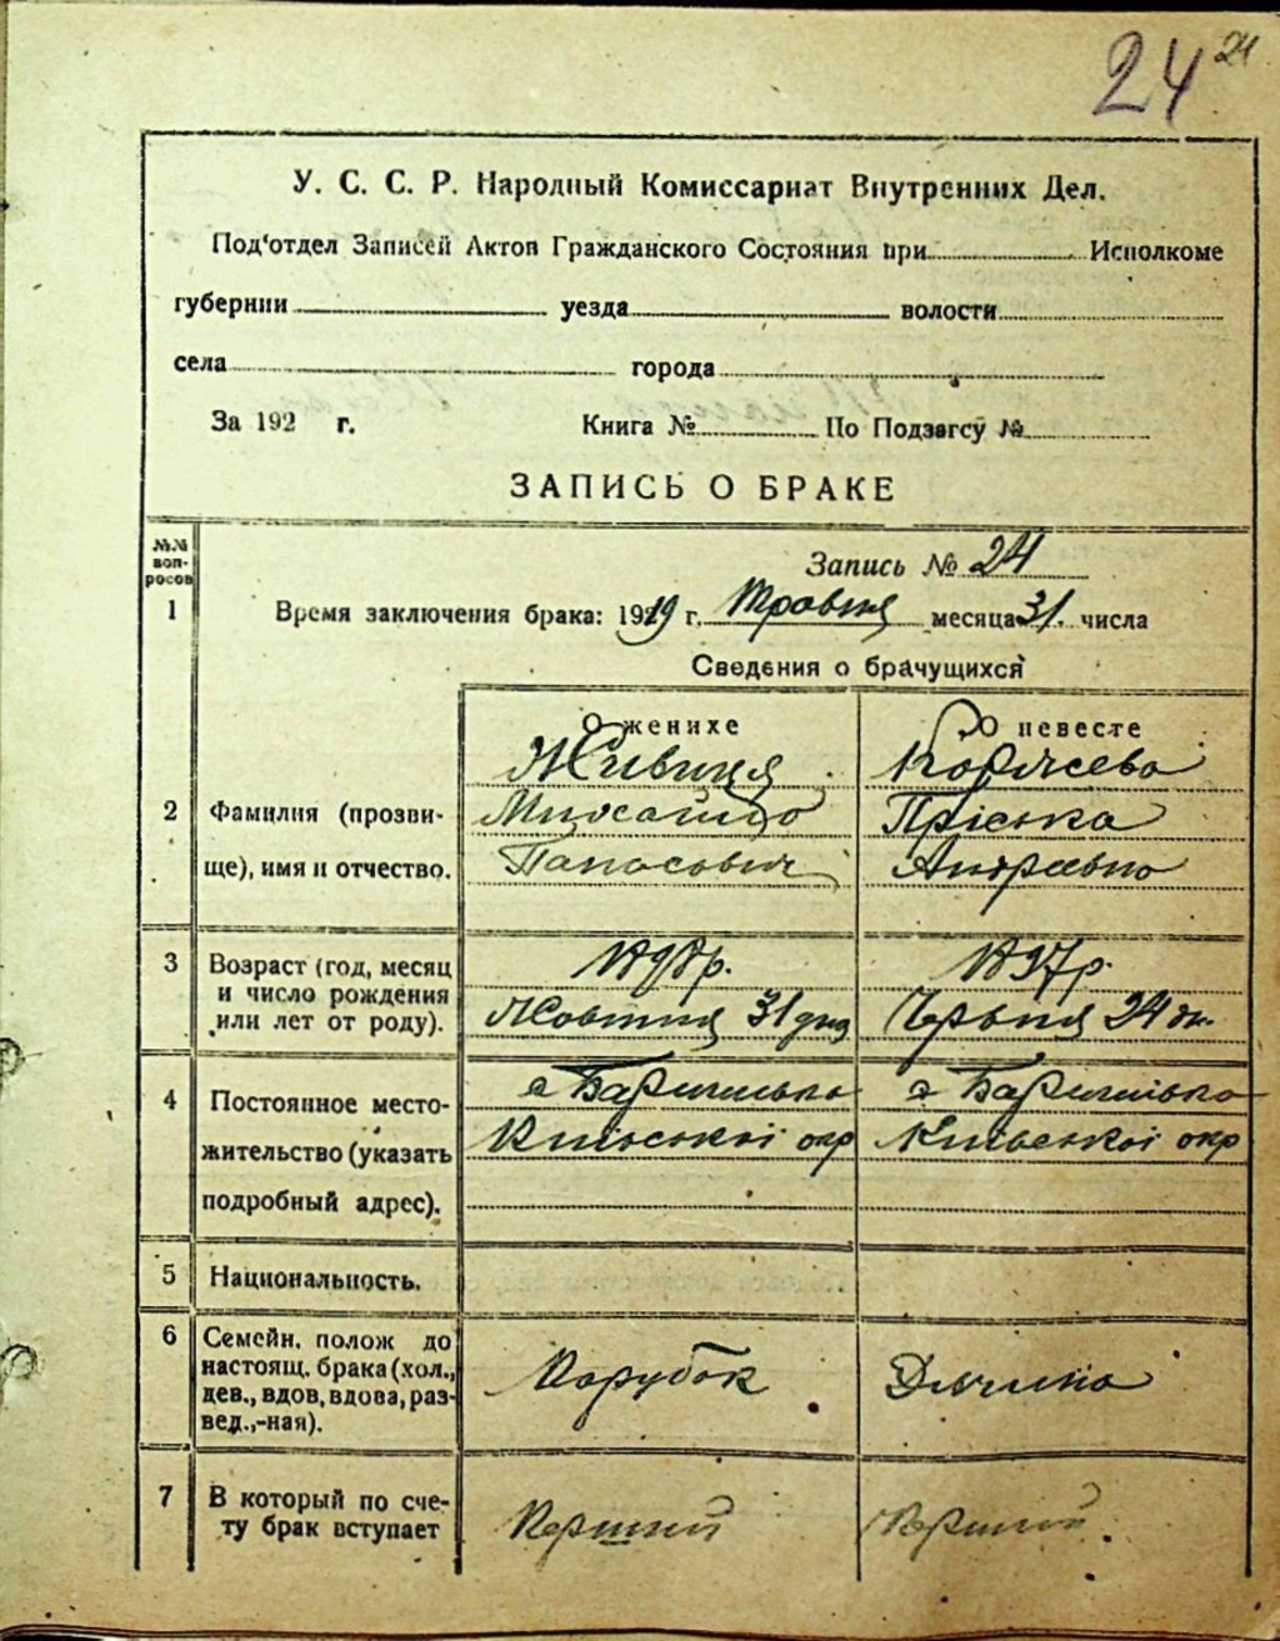 24 24
У. С. С. Р. Народный Комиссариат Внутренних Дел.
Под'отдел Записей Актов Гражданского Состояния при Исполкоме
губернии уезда волости
села города
За 192 г. Книга № По Подзагсу №
ЗАПИСЬ О БРАКЕ
№№ воп-росов
Запись № 24
1 Время заключения брака: 1919 г. Травня месяца 31. числа
Сведения о брачущихся
О женихе О невесте
Живиця
2 Фамилия (прозви- Михайло Пріська
ще), имя и отчество. Панасович Андреевна
3 Возраст (год, месяц 1898р. 1897р.
и число рождения
или лет от роду). Жовтня 31 дня Червня 24 дн.
4 Постоянное место- Баришівка Баришівка
жительство (указать Київської окр Київської окр
подробный адрес).
5 Национальность.
6 Семейн. полож до
настоящ. брака (хол., Парубок Дівчина
дев., вдов, вдова, раз-
вед.,-ная).
7 В который по сче- Перший Перший
ту брак вступает